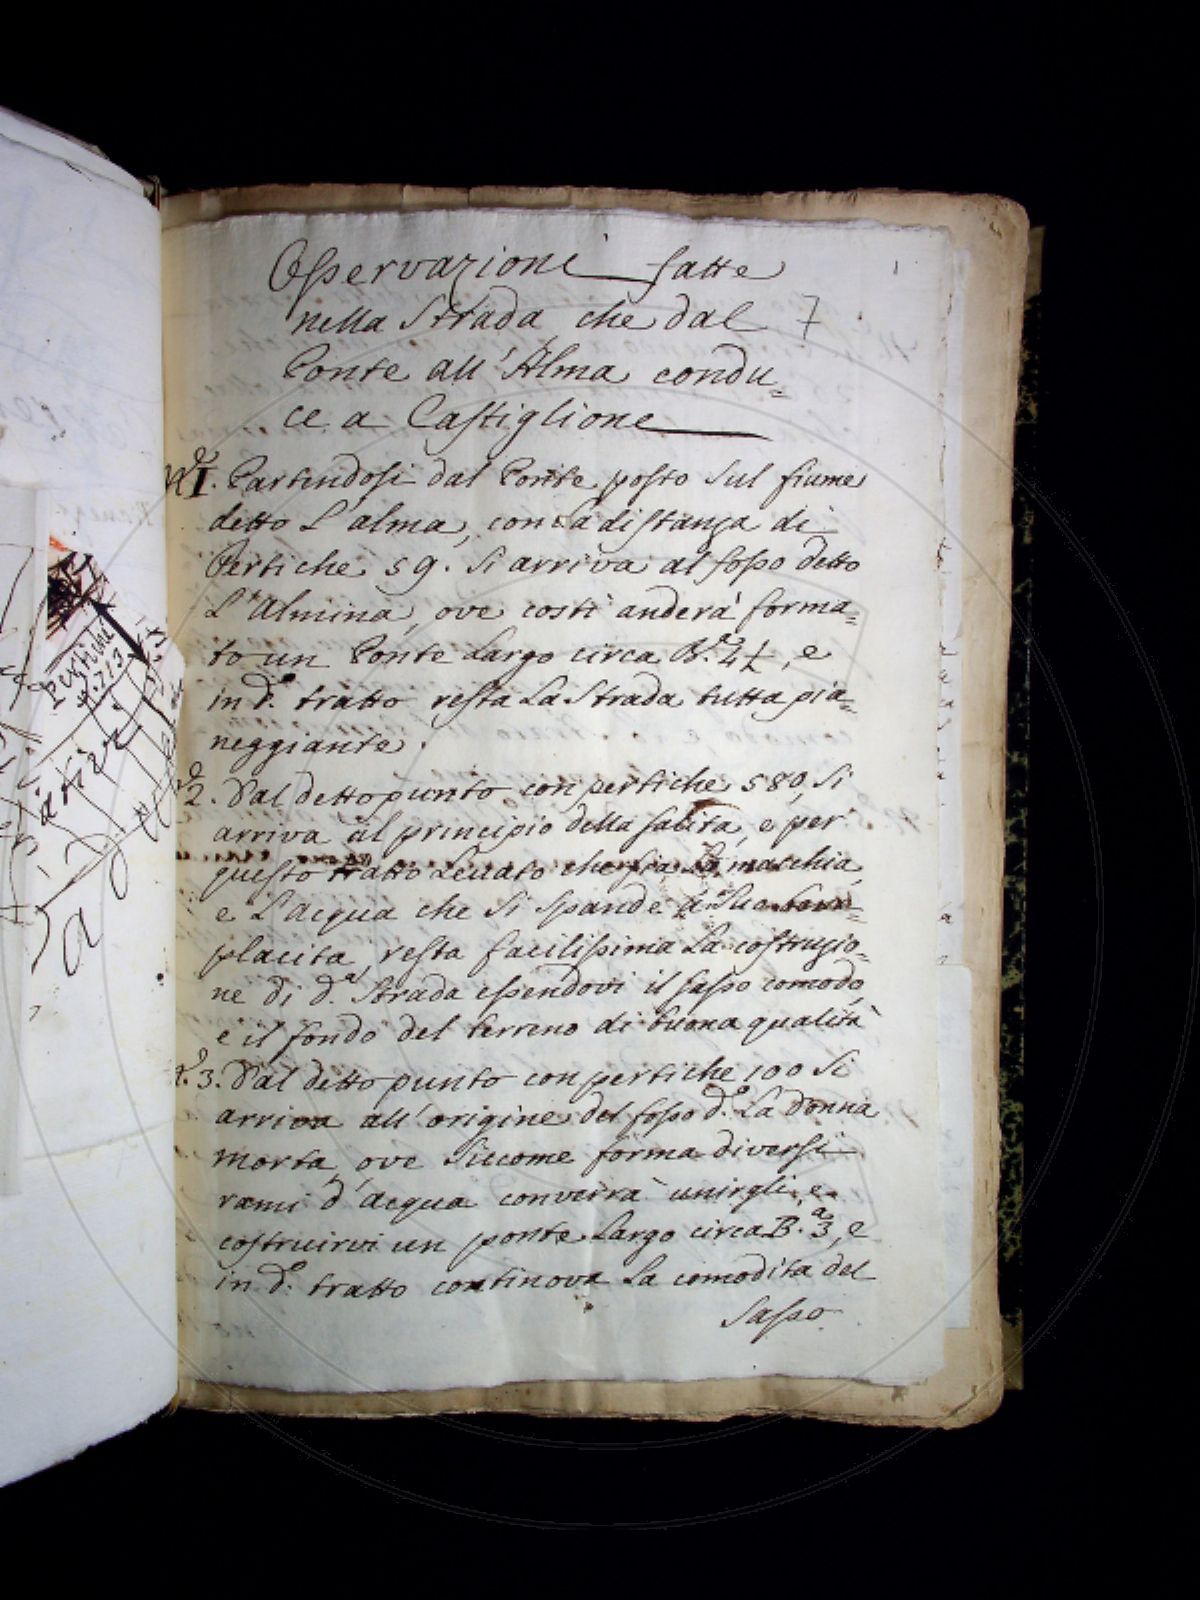 Osservazioni fatte
nella Strada che dal 7
Ponte all'Alma condu=
ce a Castiglione
N.º I. Partendosi dal Ponte posto sul fiume
detto L'alma, con la distanza di
Pertiche 59. si arriva al fosso detto
L'Almina, ove costì anderà forma=
to un Ponte Largo circa B.ª 4½, e
in d.º tratto resta La Strada tutta pia=
neggiante.
N.º 2. Dal detto punto con pertiche 580, si
arriva al principio della salita, e per
questo tratto Levato che sia La maschia,
e L'acqua che si spande à Sue
placita resta facilissima La costruzio=
ne di d.ª Strada essendovi il sasso comodo,
e il fondo del terreno di buona qualità
N.º 3. Dal detto punto con pertiche 100 si
arriva all'origine del fosso d.º La donna
morta, ove siccome forma diversi
rami d'acqua converrà unirgli, e
costruirvi un ponte Largo circa B.ª 3, e
in d.º tratto continova La comodità del
Sasso.
pertiche